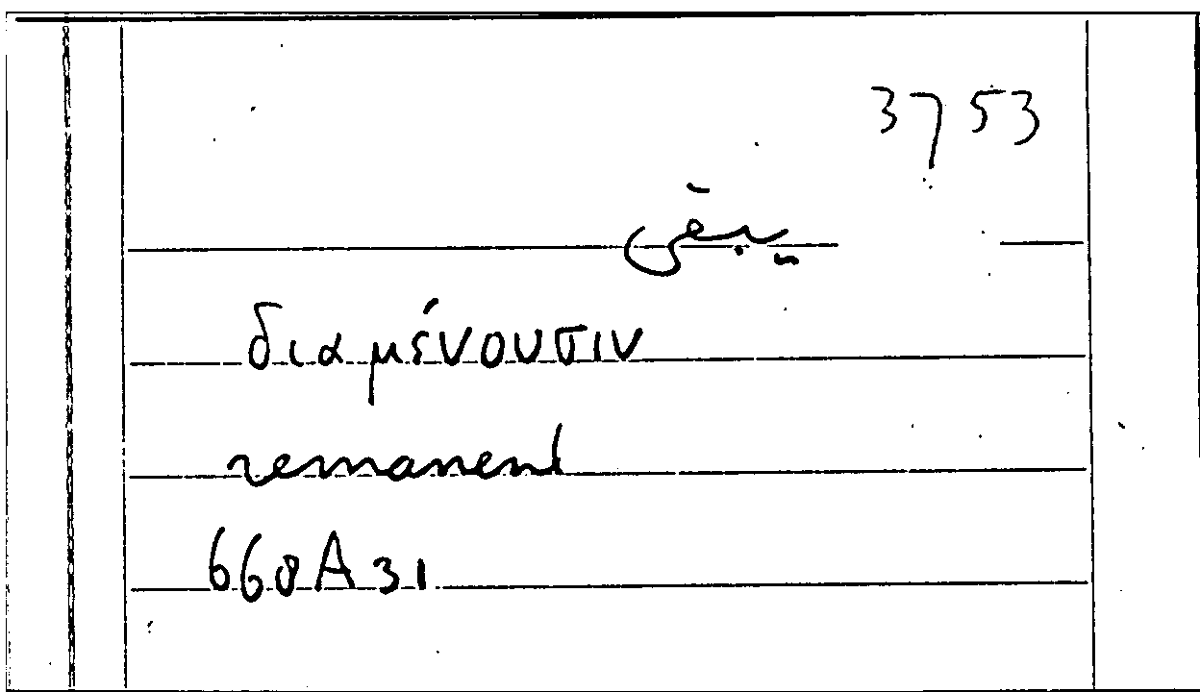 3753
يبقى
διαμένουσιν
remanent
668A31